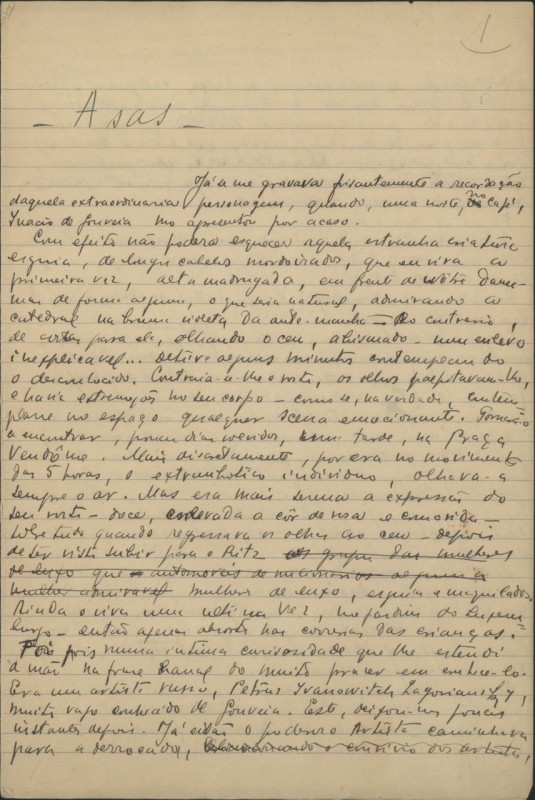 1
- Asas -
Já se me gravava frisantemente a recordação
daquela extraordinaria personagem, quando, uma noite, no café,
Inacio de Gouveia mo apresentou por acaso.
Com efeito não podera esquecer aquela estranha criatura
esguia, de longos cabelos mordoirados, que eu vira a
primeira vez, alta madrugada, em frente de Nôtre Dame -
mas de forma alguma, o que seria natural, admirando a
catedral na bruma violeta da ante-manhã - Ao contrario,
de costas para ela, olhando o ceu, abismado - num enlevo
inexplicavel... Detive alguns minutos contemplando
o desconhecido. Contraia-se-lhe o rosto, os olhos palpitavam-lhe,
e havia estremeções no seu corpo - como se, na verdade, em
plano no espaço qualquer scena emocionante. Tornara-o
a encontrar, poucos dias volvidos, uma tarde, na Praça
Vendôme. Mais discretamente, por era no movimento
das 5 horas, o extrambolico individuo, olhava
sempre o ar. Mas era mais serena a expressão do
seu rosto - doce, a côr de rosa e comovida -
sobretudo quando regressava os olhos ao ceu - depois
de ter visto subir para o Ritz os grupos das mulheres
de luxo que automoveis de milionarios
mulher admiravel mulheres de luxo, esguias e
Ainda o vira uma ultima vez, no jardim do Luxem-
burgo - então apenas absorto nas correrias das crianças.
Foi pois numa intima curiosidade que lhe estendi
a mão na frase banal do muito prazer em conhece-lo.
Era um artista russo, Petrus Ivanowitch Zagoriansky,
muito vago conhecido de Gouveia. Este, deixou-nos poucos
instantes depois. Já então o poderoso Artista caminhava
para a derrocada, o convivio dos artistas,